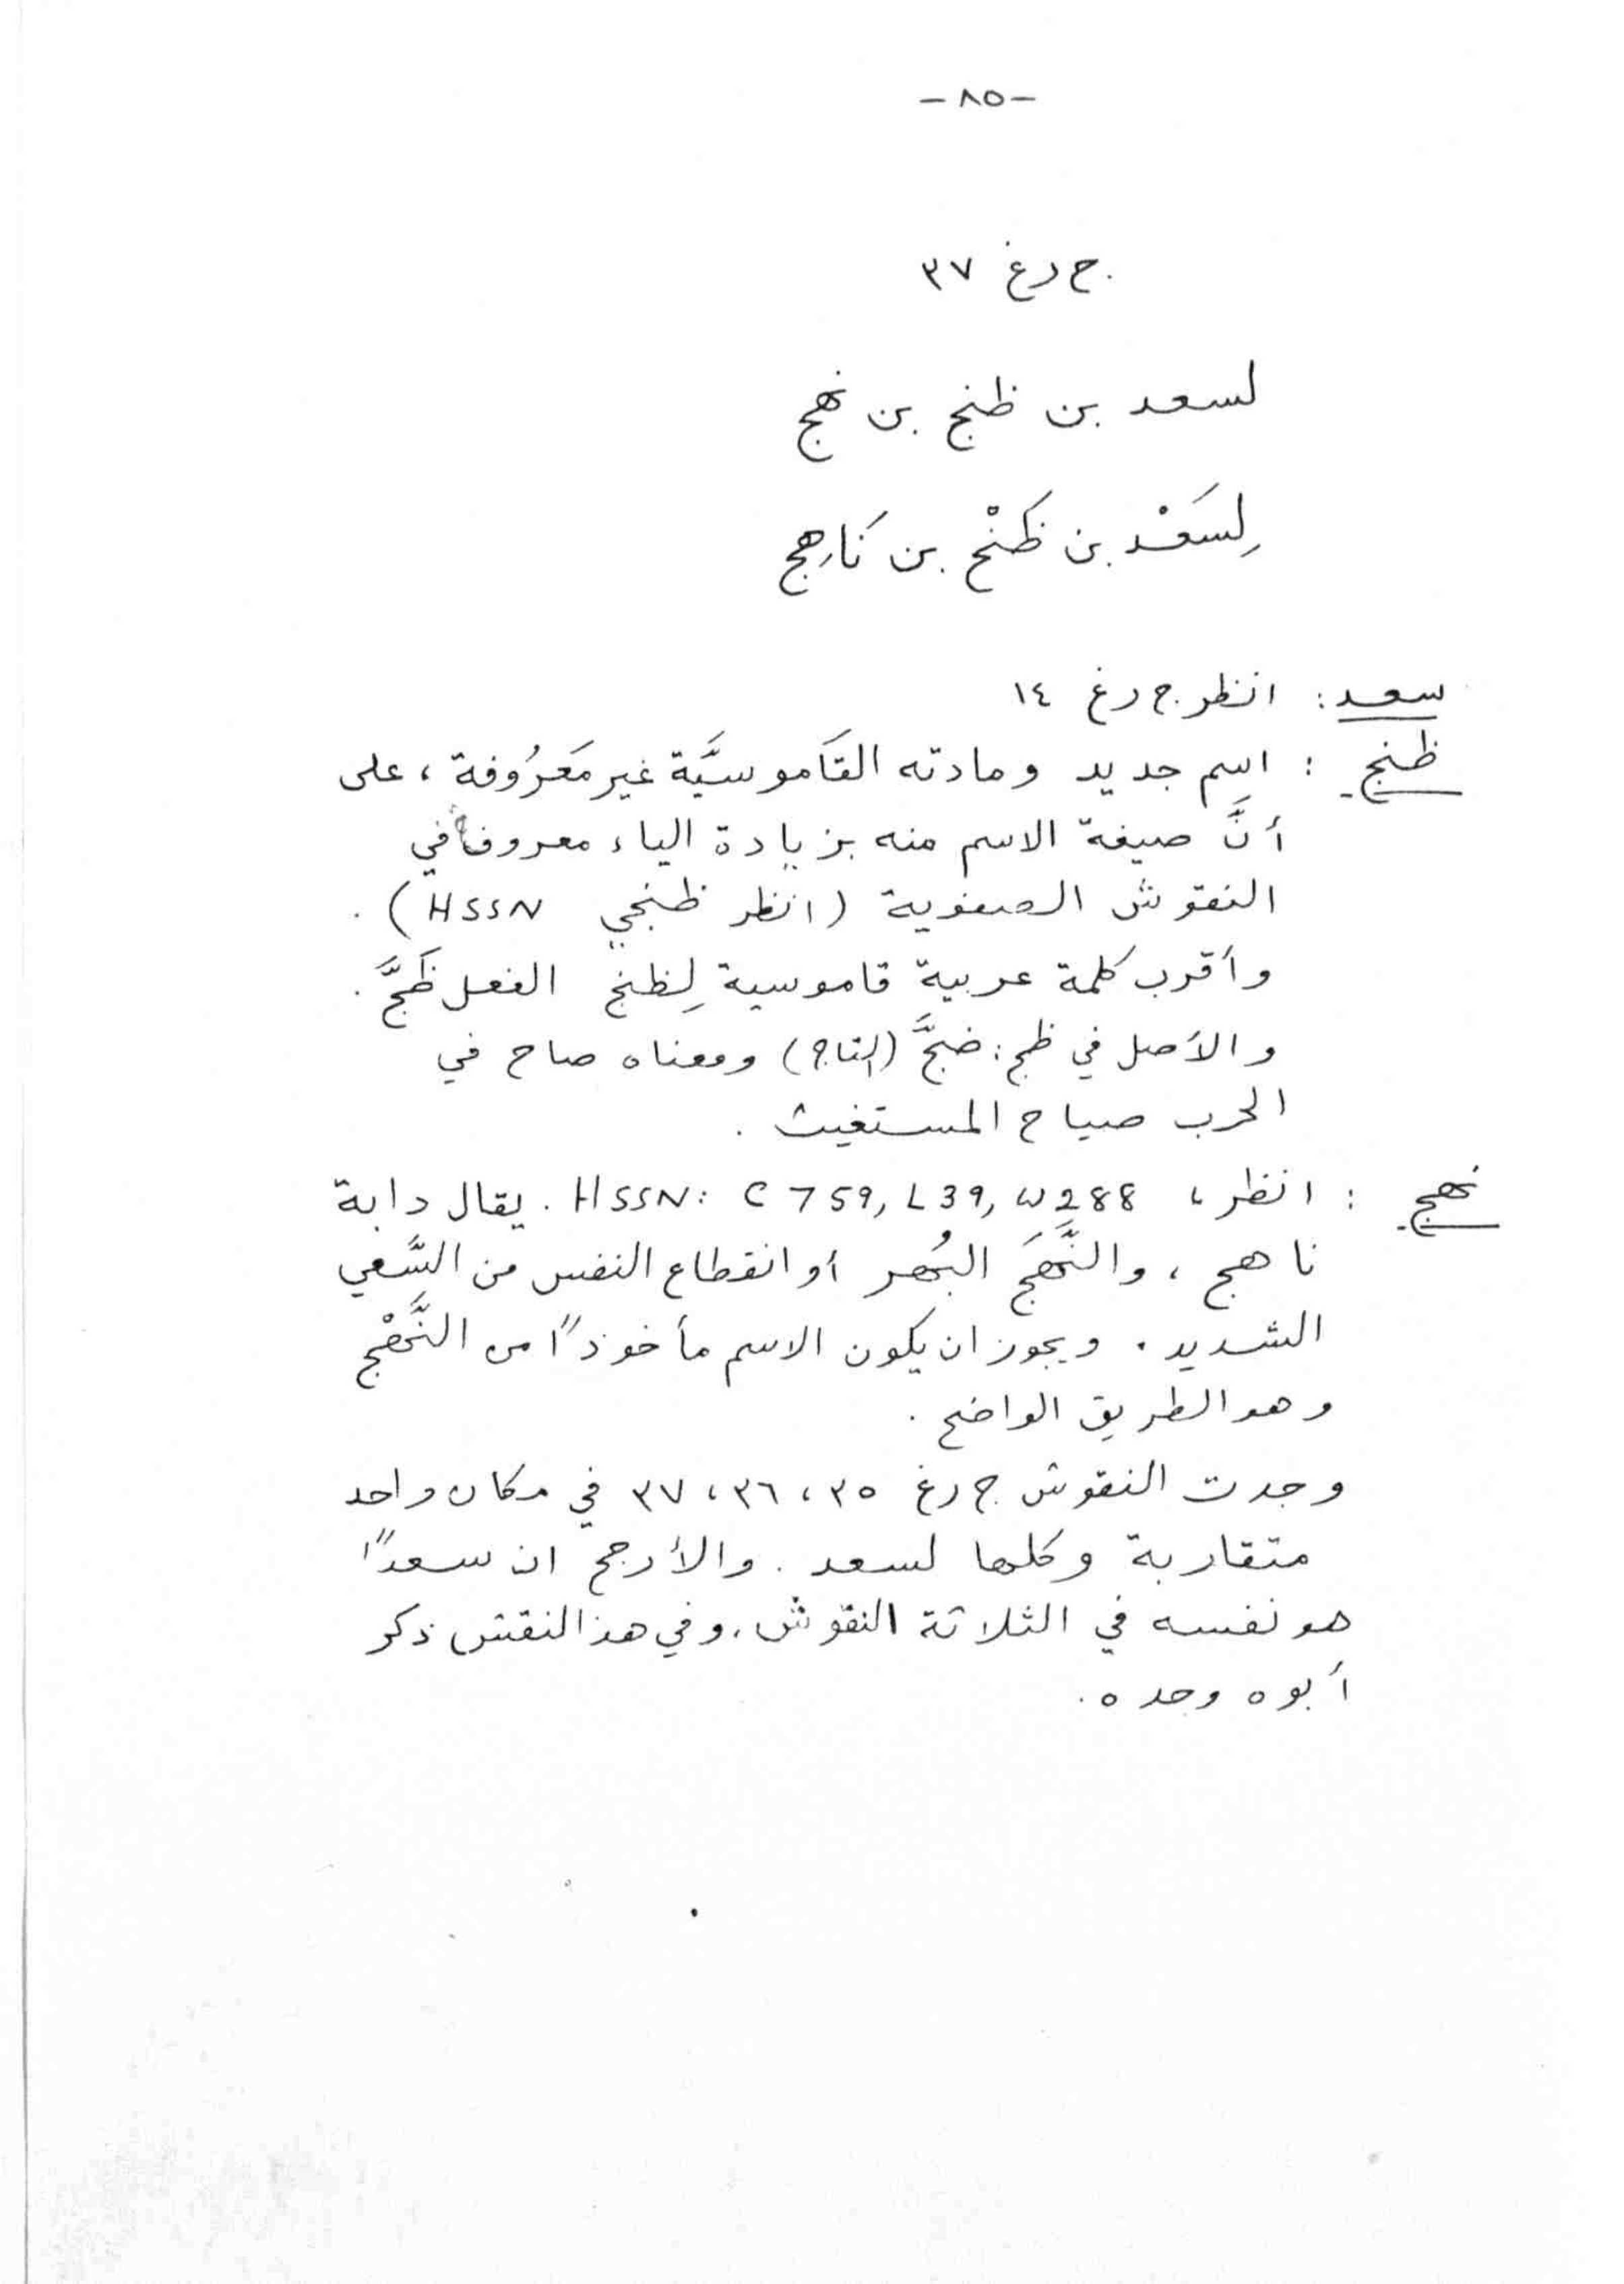 -٨٥-
ج رغ ٣٧
لسعد بن ظنج بن نهج
لِسَعْد بن ظَنْج بن نَاهِج
سعد : انظر ج رغ ١٤
ظنج : اسم جديد ومادته القَاموسيَّة غير مَعرُوفة ، على
أنَّ صيغة الاسم منه بزيادة الياء معروفة في
النقوش الصفوية (انظر ظنجي HSSN) .
وأقرب كلمة عربية قاموسية لِظنج الفعل ظَجَّ .
والأصل في ظج : ضجَّ (التاج) ومعناه صاح في
الحرب صياح المستغيث .
نهج : انظر ، HSSN: C 759, L39, W288 . يقال دابة
ناهج ، والنَّهَجَ البُهر أو انقطاع النفس من السَّعي
الشديد . ويجوز ان يكون الاسم مأخوذاً من النَّهْج
وهو الطريق الواضح .
وجدت النقوش ج رغ ٣٥ ، ٣٦ ، ٣٧ في مكان واحد
متقاربة وكلها لسعد . والأرجح ان سعداً
هو نفسه في الثلاثة النقوش . وفي هذا النقش ذكر
أبوه وجده .